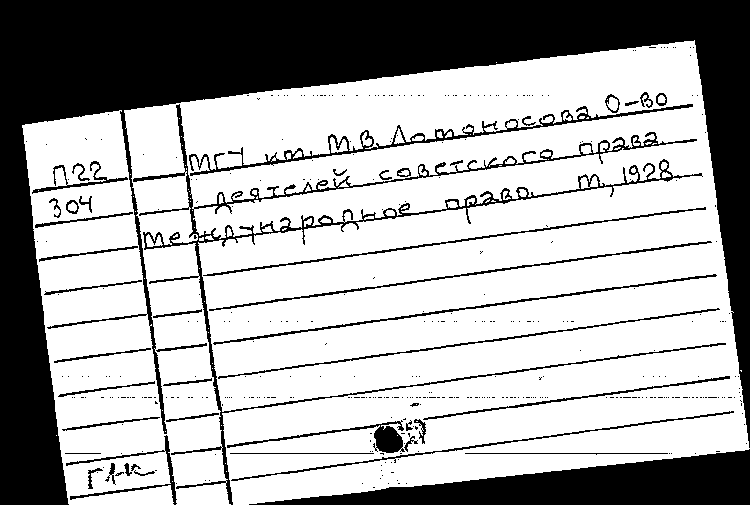 П22
304
МГУ им. М.В. Ломоносова. О-во
деятелей советского права.
Международное право. М., 1928.